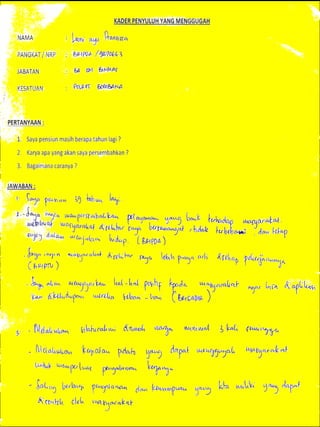 KADER PENYULUH YANG MENGGUGAH
NAMA :
PANGKAT / NRP : BRIPDA /
JABATAN : BA SAT BINMAS
KESATUAN : POLRES BOMBANA
PERTANYAAN :
1. Saya pensiun masih berapa tahun lagi ?
2. Karya apa yang akan saya persembahkan ?
3. Bagaimana caranya ?
JAWABAN :
1. Saya pensiun 39 tahun lagi.
2. - Saya ingin mempersembahkan pelayanan yang baik terhadap masyarakat.
membuat masyarakat disekitar saya bersemangat, tidak terbebani dan tetap
enjoy dalam menjalani hidup. (BRIPDA)
- Saya ingin masyarakat disekitar saya lebih punya arti disetiap pekerjaannya
(BRIPTU)
- Saya akan mengajarkan hal-hal positif kepada masyarakat agar bisa diaplikasi
kan dikehidupan mereka sehari-hari (BRIGADIR)
3. - Melakukan silaturahmi dirumah warga minimal 3 kali seminggu
- Melakukan kegiatan pidato yang dapat menggugah masyarakat
untuk memperluas pengalaman kerjanya
- Saling berbagi pengalaman dan kemampuan yang kita miliki yang dapat
dicontoh oleh masyarakat